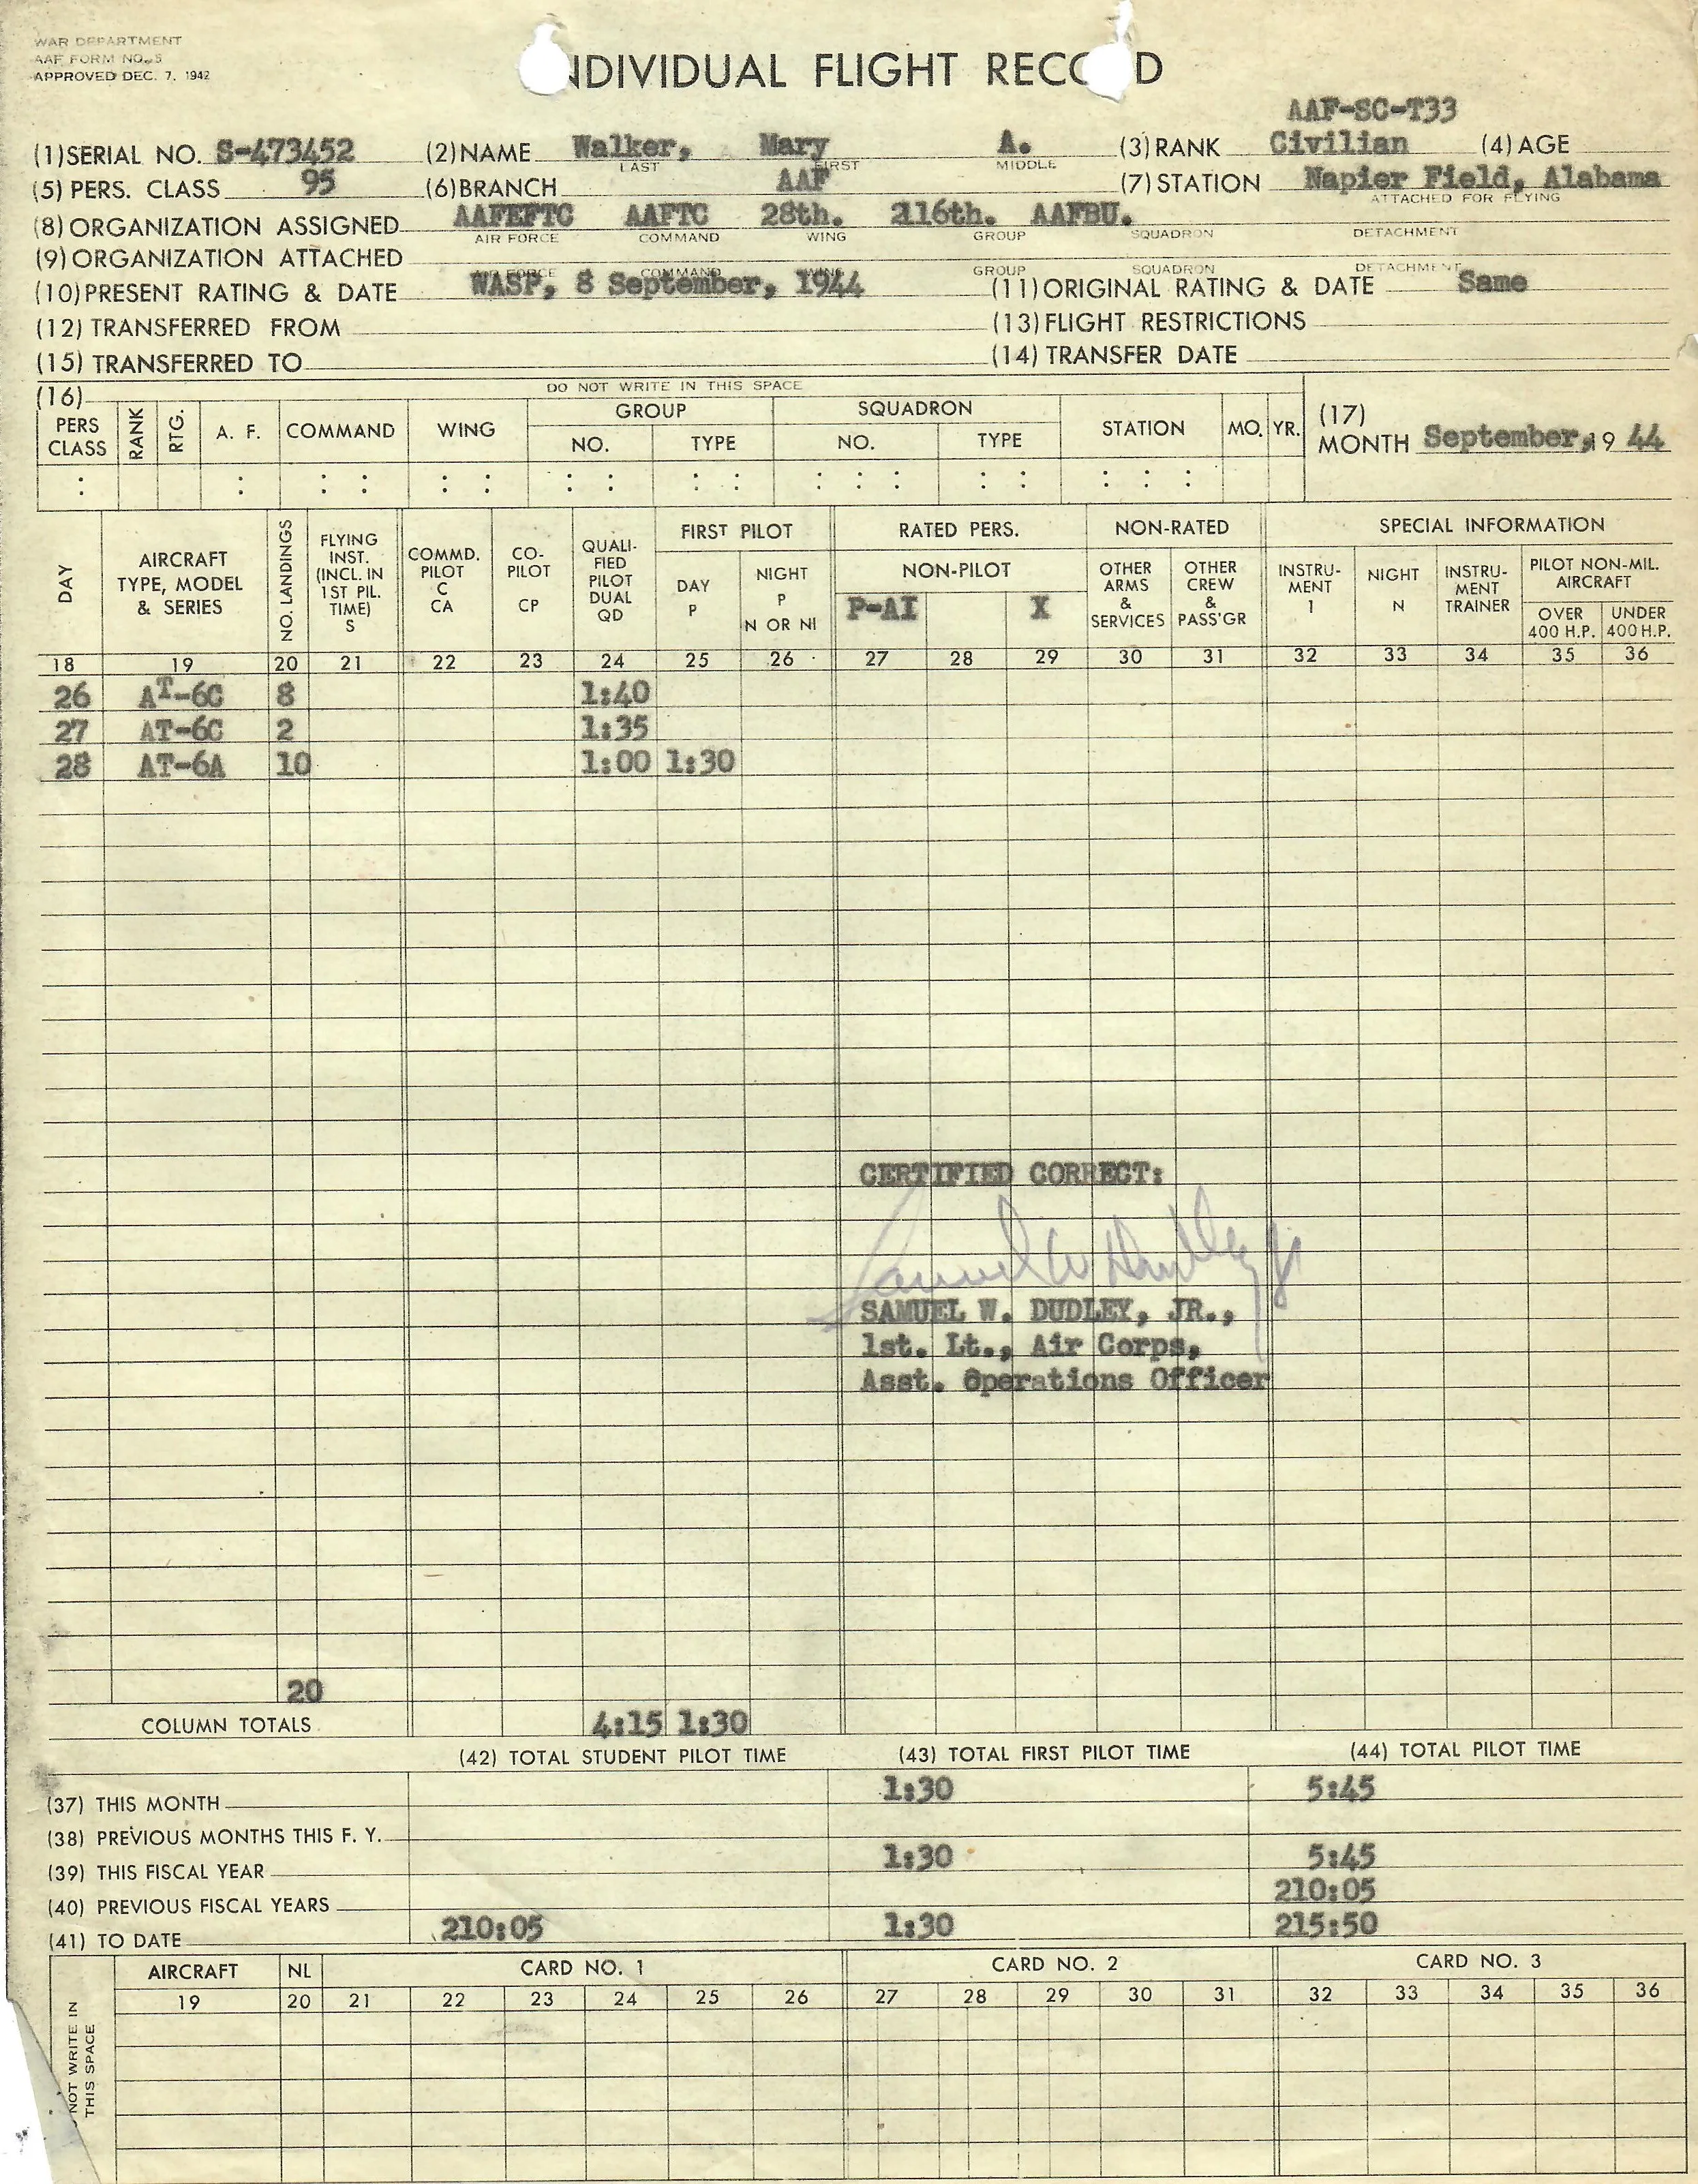 WAR DEPARTMENT
AAF FORM NO. 5
APPROVED DEC. 7, 1942
NDIVIDUAL FLIGHT RECO D
AAF-SC-T33
(1) SERIAL NO. S-473452 (2) NAME Walker, Mary A. (3) RANK Civilian (4) AGE
LAST FIRST MIDDLE
(5) PERS. CLASS 95 (6) BRANCH AAF (7) STATION Napier Field, Alabama
ATTACHED FOR FLYING
(8) ORGANIZATION ASSIGNED AAFEFTC AAFTC 28th. 2116th. AAFBU.
AIR FORCE COMMAND WING GROUP SQUADRON DETACHMENT
(9) ORGANIZATION ATTACHED
AIR FORCE COMMAND WING GROUP SQUADRON DETACHMENT
(10) PRESENT RATING & DATE WASP, 8 September, 1944 (11) ORIGINAL RATING & DATE Same
(12) TRANSFERRED FROM (13) FLIGHT RESTRICTIONS
(15) TRANSFERRED TO (14) TRANSFER DATE
(16) DO NOT WRITE IN THIS SPACE
PERS CLASS RANK RTG. A. F. COMMAND WING GROUP NO. TYPE SQUADRON NO. TYPE STATION MO. YR.
(17)
MONTH September, 19 44
DAY AIRCRAFT TYPE, MODEL & SERIES NO. LANDINGS FLYING INST. (INCL. IN 1ST PIL. TIME) S COMMD. PILOT C CA CO-PILOT CP QUALI-FIED PILOT DUAL QD FIRST PILOT DAY P NIGHT P N OR NI RATED PERS. NON-PILOT P-AI X NON-RATED OTHER ARMS & SERVICES OTHER CREW & PASS'GR SPECIAL INFORMATION INSTRU-MENT I NIGHT N INSTRU-MENT TRAINER PILOT NON-MIL. AIRCRAFT OVER 400 H.P. UNDER 400 H.P.
18 19 20 21 22 23 24 25 26 27 28 29 30 31 32 33 34 35 36
26 AT-6C 8 1:40
27 AT-6C 2 1:35
28 AT-6A 10 1:00 1:30
CERTIFIED CORRECT:
Samuel W Dudley Jr
SAMUEL W. DUDLEY, JR.,
1st. Lt., Air Corps,
Asst. Operations Officer
20
COLUMN TOTALS 4:15 1:30
(42) TOTAL STUDENT PILOT TIME (43) TOTAL FIRST PILOT TIME (44) TOTAL PILOT TIME
(37) THIS MONTH 1:30 5:45
(38) PREVIOUS MONTHS THIS F. Y.
(39) THIS FISCAL YEAR 1:30 5:45
(40) PREVIOUS FISCAL YEARS 210:05
(41) TO DATE 210:05 1:30 215:50
NOT WRITE IN THIS SPACE
AIRCRAFT NL CARD NO. 1 CARD NO. 2 CARD NO. 3
19 20 21 22 23 24 25 26 27 28 29 30 31 32 33 34 35 36